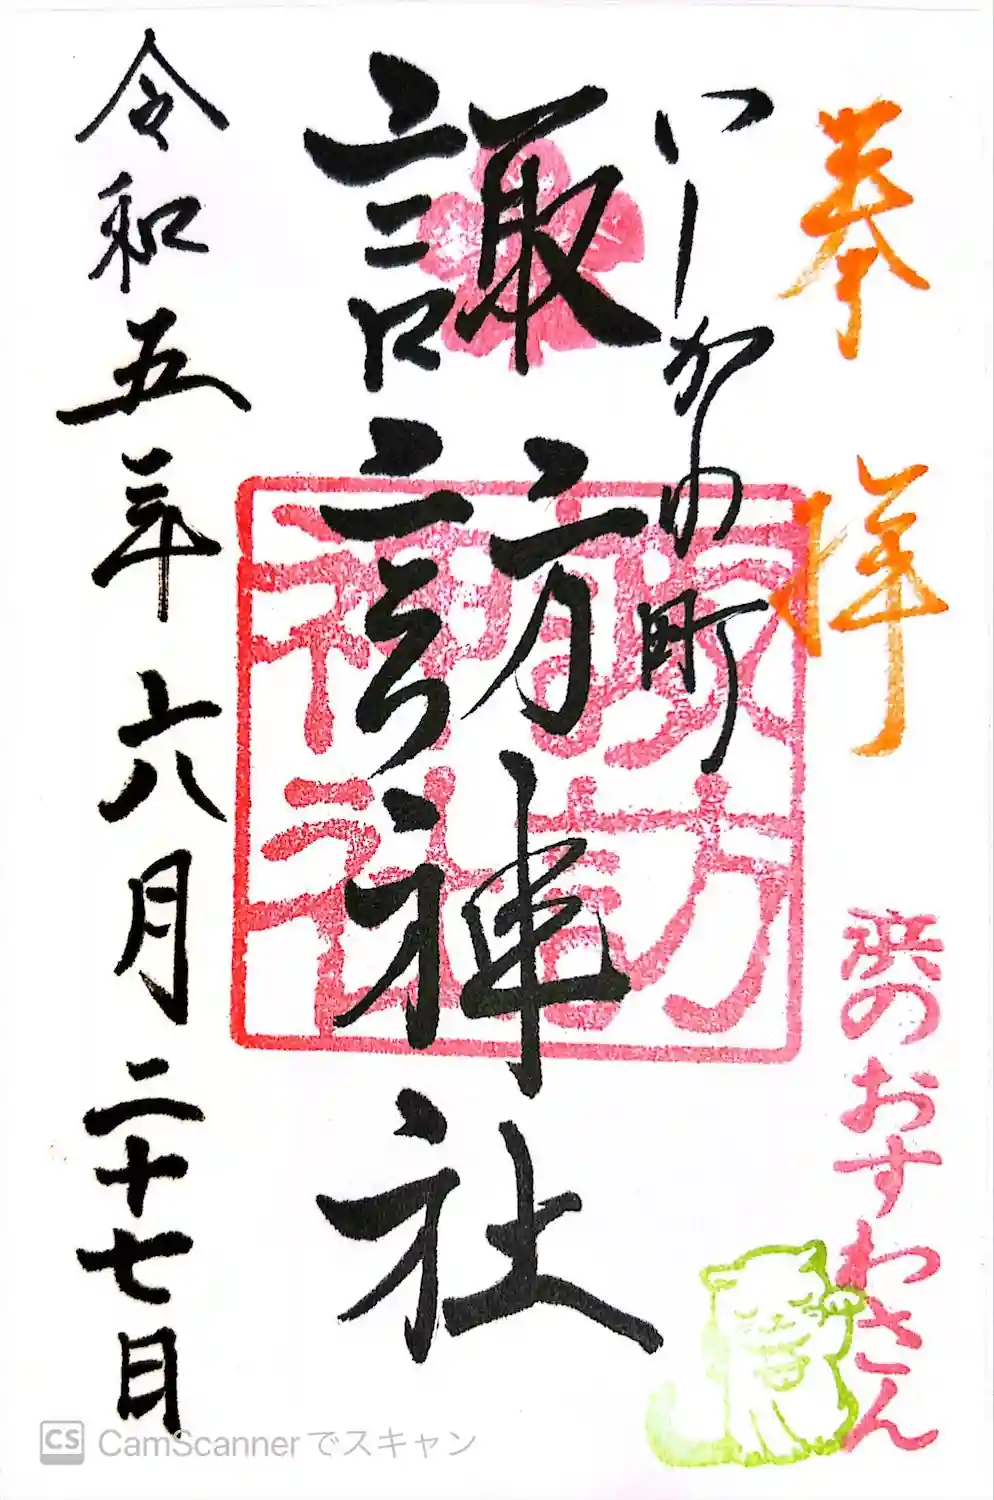 奉拝
浜のおすわさん
いしかわ町
諏訪神社
諏訪神社
令和五年六月二十七日
CS CamScannerでスキャン